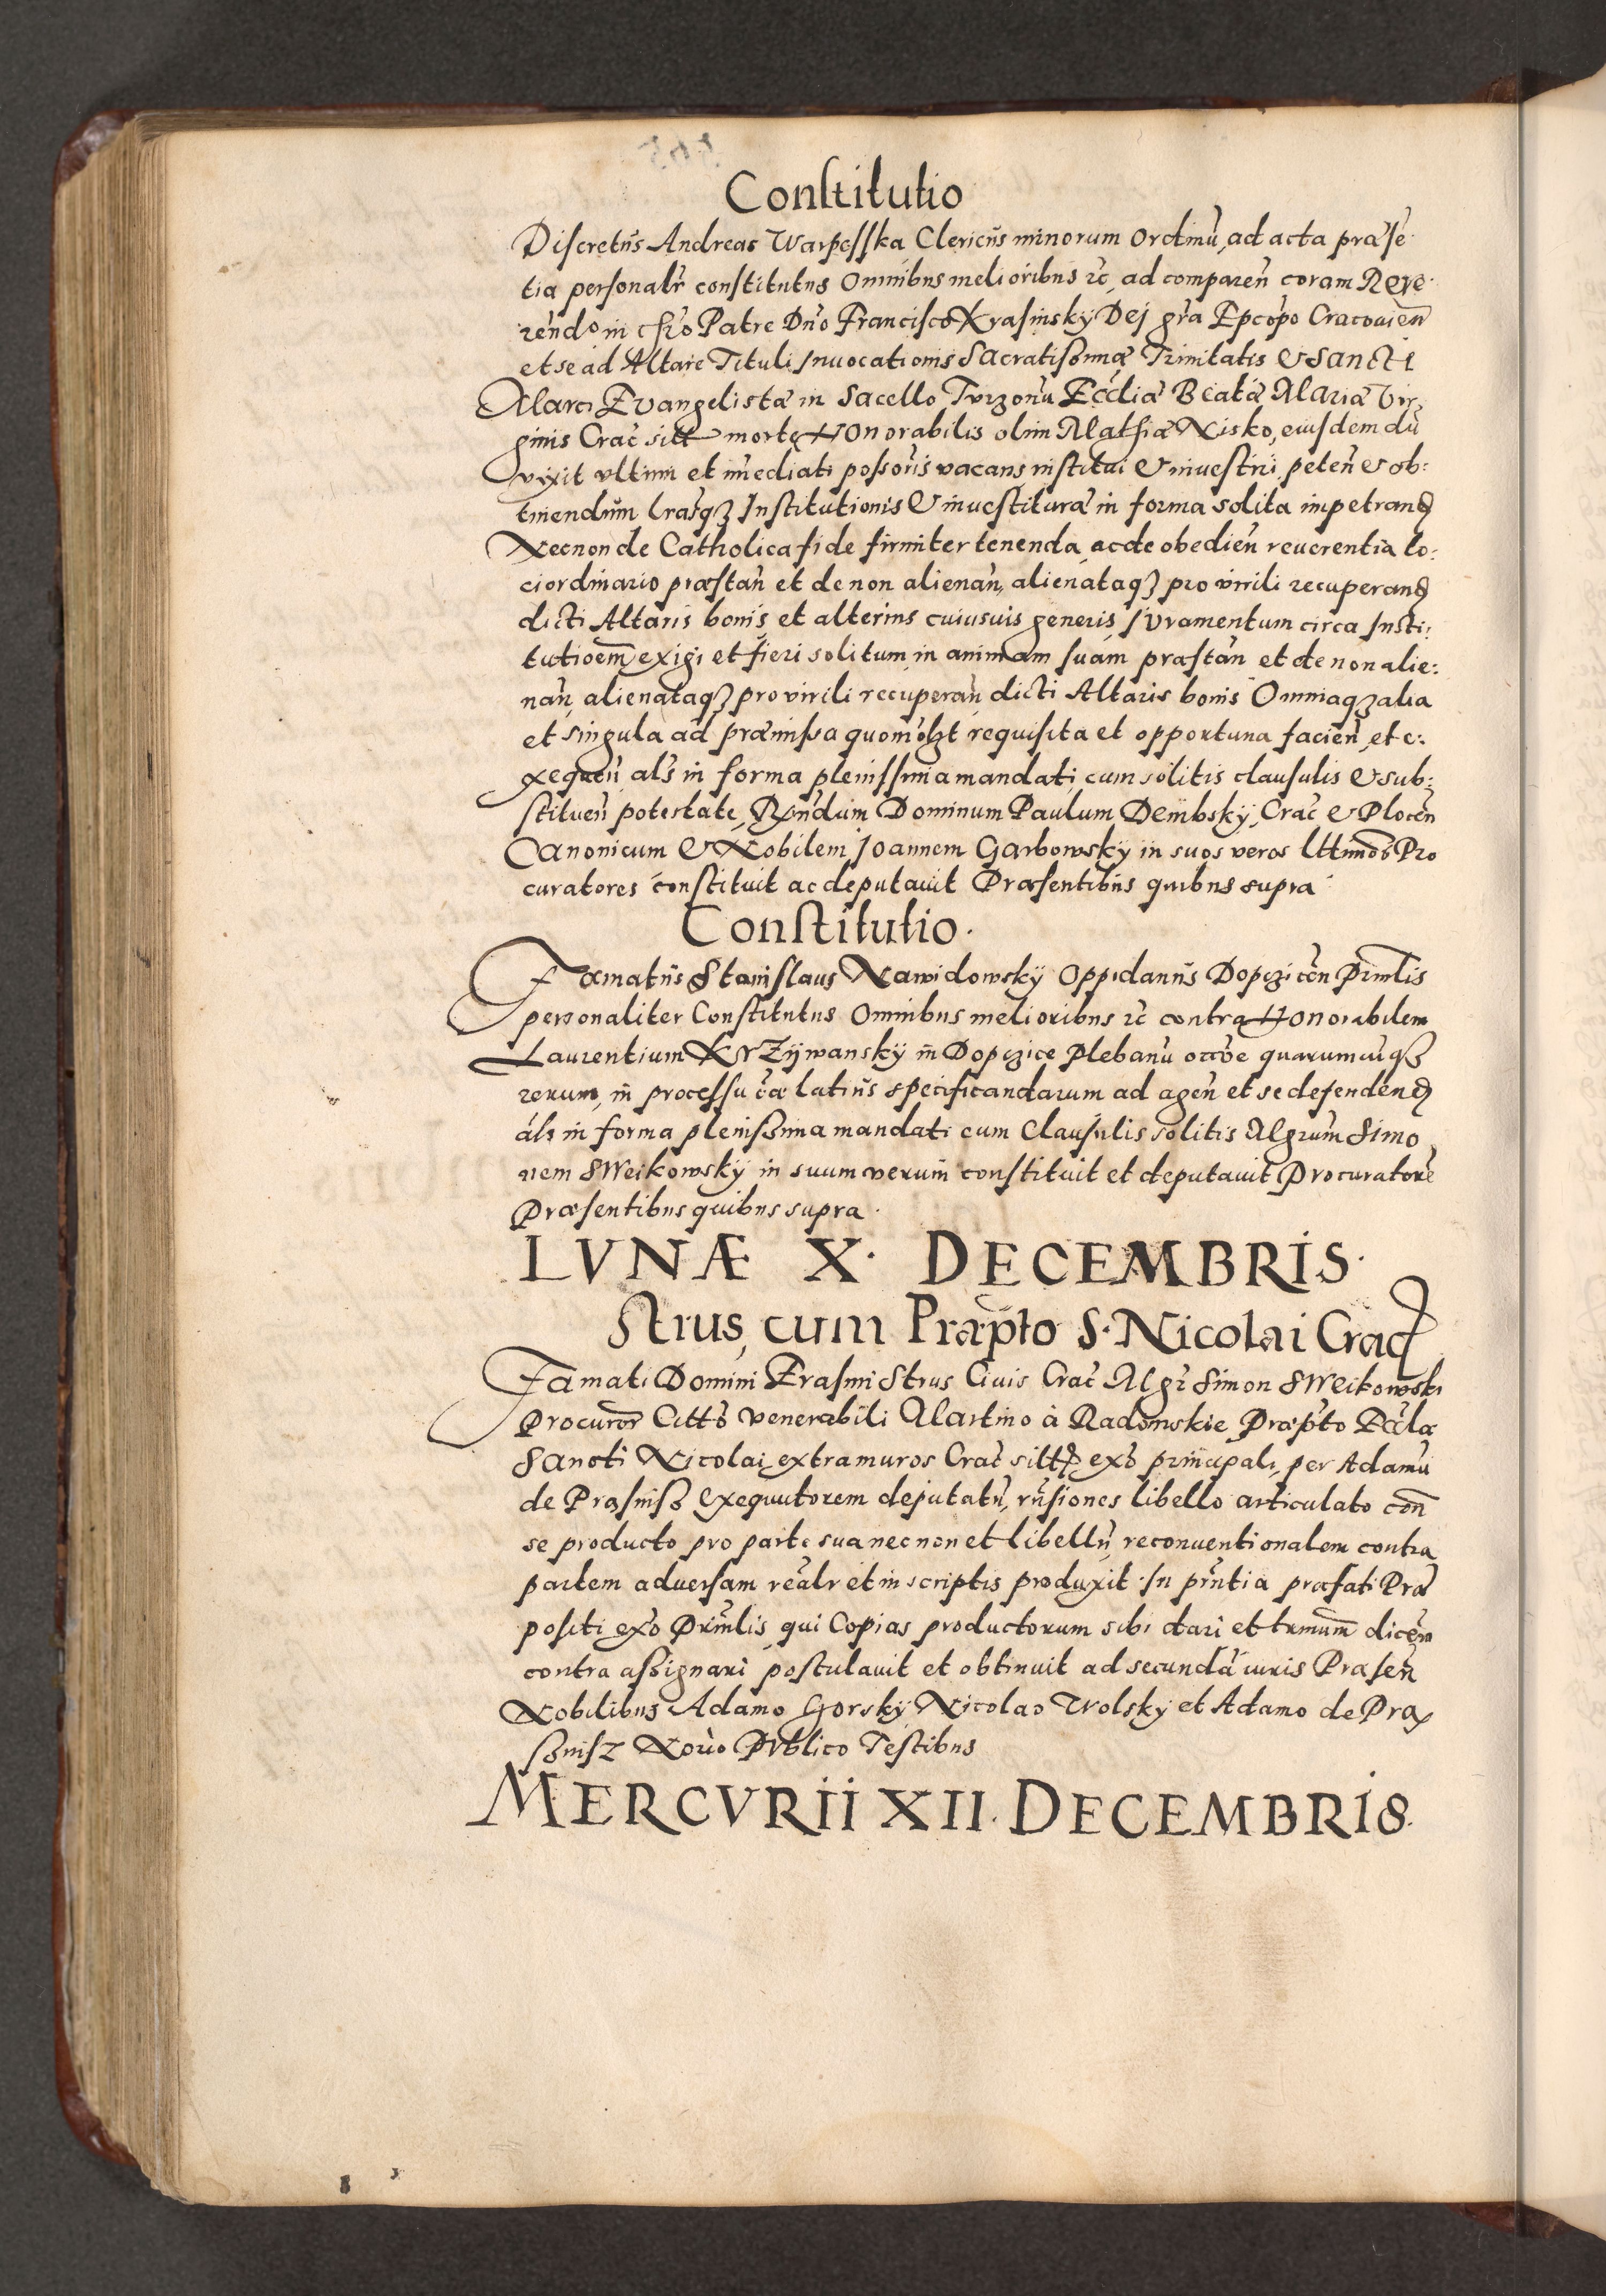 Constitutio
Discretus Andreas Warpesska Clericus minorum Ordinū, ad acta præsē
tia personalr̄ constitutus Omnibus melioribus ꝛc, ad comparen̄ coram Reve
rendo in chr̄o Patre Dn̄o Francisco Krasinskÿ Dej gr̄a Ep̄copo Cracouien̄
et se ad Altare Tituli Inuocationis Sacratissimæ Trinitatis & Sancti
Marci Evangelistæ in Sacello Turzonū Ecc̄liæ Beatæ Mariæ Vir
ginis Crac̄ sitt morte Honorabilis olim Mathiæ Nisko, eiusdem dū
vixit vltimi et im̄ediati possoris vacans institui & inuestiri, peten̄ & ob:
tinendum̄ lrasqȝ Institutionis & inuestituræ in forma solita impetrand
Necnon de Catholica fide firmiter tenenda, ac de obedien̄ reuerentia lo:
ci ordinario præstan̄ et de non alienan̄, alienataqȝ pro virili recuperand
dicti Altaris bonis et alterius cuiusuis generis Iuramentum circa Insti:
tutioem̄ exigi et fieri solitum, in animam suam præstan̄ et de non alie:
nan̄, alienataqȝ pro virili recuperan̄ dicti Altaris bonis Omniaqȝ alia
et singula ad præmissa quomol̄zt requisita et opportuna facien̄, et e:
xequen̄ als̄ in forma plenissima mandati, cum solitis clausulis & sub:
stituen̄ potestate, Rx̄ndum Dominum Paulum Dembskÿ, Crac̄ & Plocen̄
Canonicum & Nobilem Joannem Garbowskÿ in suos veros lttimos Pro
curatores constituit ac deputauit Præsentibus quibus supra
Constitutio.
Famatus Stanislaus Nawidowskÿ Oppidanus Dopczicen̄ Prn̄lis
personaliter Constitutus Omnibus melioribus ꝛc contra Honorabilem
Laurentium Krzÿwanskÿ in Dopczice Plebanū occ̄oe quarumcuqȝ
rerum, in processu cæ latius specificandarum ad agen̄ et se defendend
als̄ in forma plenissima mandati cum Clausulis solitis Mgrum Simo
nem Sweikowskÿ in suum verum constituit et deputauit Procuratorē
Præsentibus quibus supra.
LVNÆ X. DECEMBRIS.
Strus, cum Præpto S. Nicolai Crac
Famati Domini Erasmi Strus Civis Crac̄ Mgr̄ Simon Sweikowski
Procuror̄ Citt̄o venerabili Martino à Radomskie Præp̄to Ec̄læ
Sancti Nicolai, extra muros Crac̄ sitt, ex̄o principali, per Adamū
de Prasnisz Exequutorem deputatū, rn̄siones libello articulato con̄
se producto pro parte sua nec non et libellū, reconuentionalem contra
partem aduersam reālr̄ et in scriptis produxit. In prn̄tia præfati Præ
positi ex̄o Prn̄lis, qui Copias productorum sibi dari et trmum̄ dicen̄
contra assignari postulauit et obtinuit ad secundā iuris Præsen̄
Nobilibus Adamo Gorskÿ Nicolao Wolsky et Adamo de Pra
sznisz Nor̄io Publico Testibus
MERCVRII XII. DECEMBRIS.